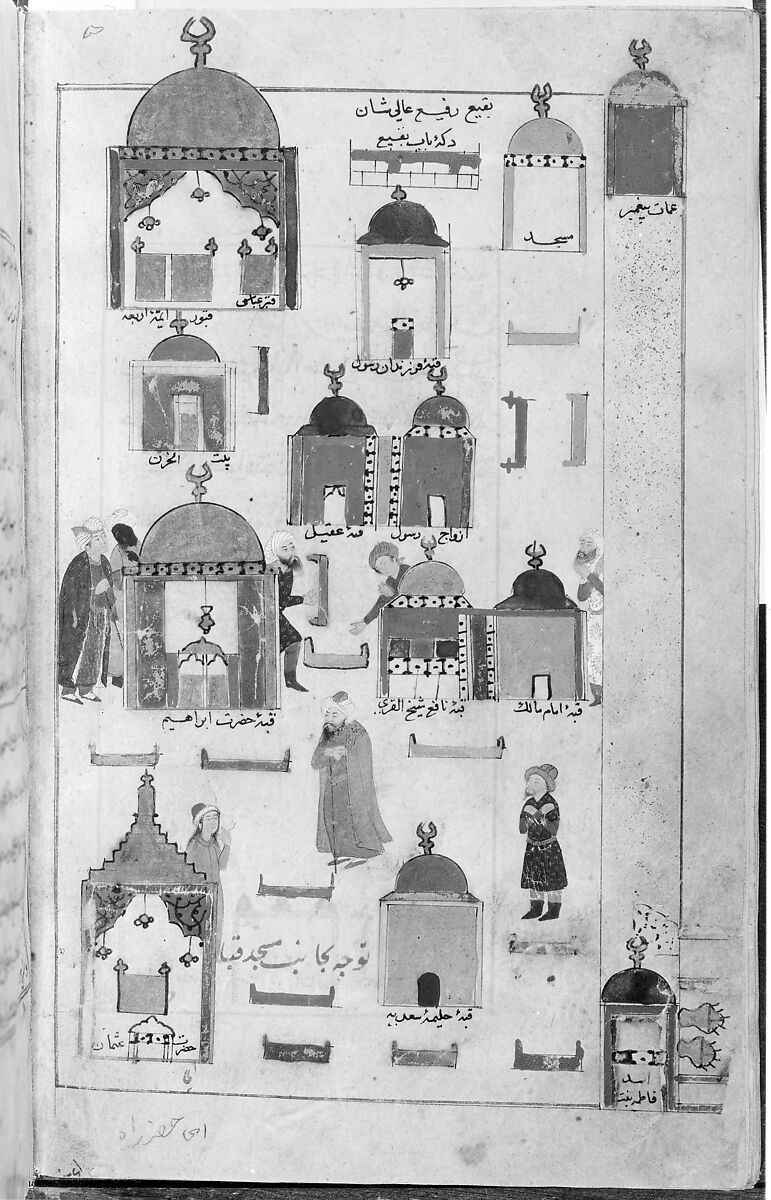 بقیع رفیع عالی شان
دکهٔ باب بقیع
مسجد
عمات پیغمبر
قبور ایمهٔ اربعه
قبر عباس
قبهٔ فرزندان رسول
بیت الحزن
قبهٔ عقیل
ازواج رسول
قبهٔ حضرت ابراهیم
قبهٔ نافع شیخ القری
قبهٔ امام مالک
توجه بجانب مسجد قبا
قبهٔ حلیمهٔ سعدیه
حضرت عثمان
فاطمه بنت اسد